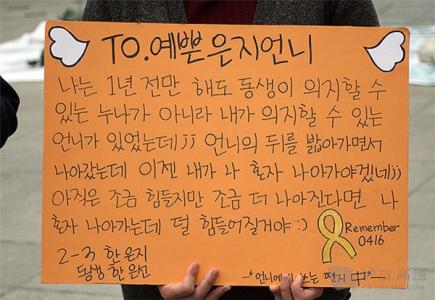 TO.예쁜은지언니
나는 1년 전만 해도 동생이 의지할 수
있는 누나가 아니라 내가 의지할 수 있는
언니가 있었는데jj 언니의 뒤를 밟아가면서
나아갔는데 이젠 내가 나 혼자 나아가야겠네jj
아직은 조금 힘들지만 조금 더 나아진다면 나
혼자 나아가는데 덜 힘들어질거야 :)
Remember
0416
2-3 한은지
동생 한은
-"언니에게 쓰는 편지 中"